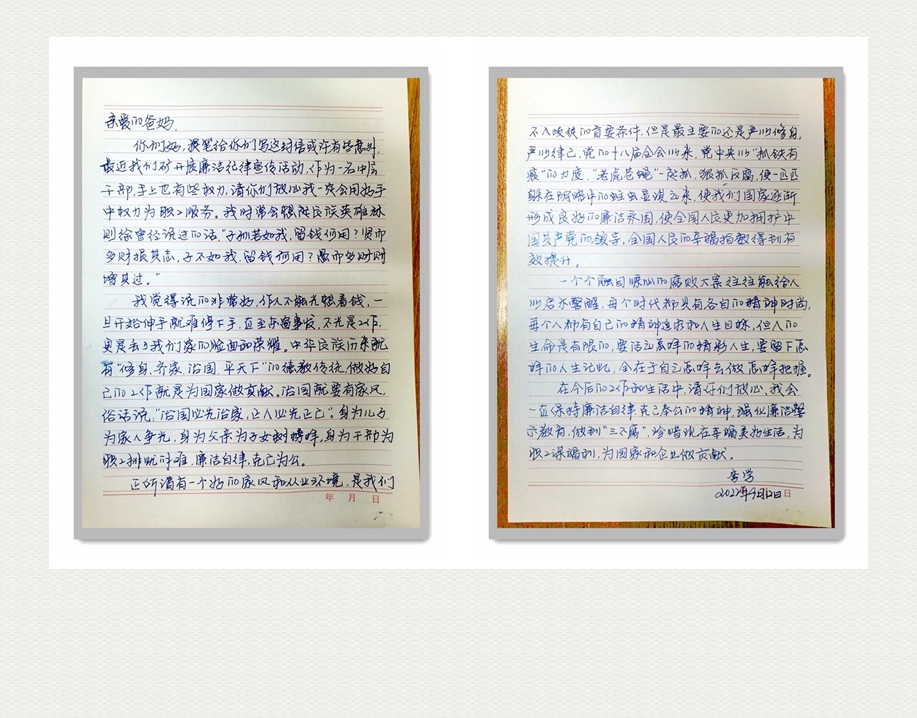 亲爱的爸妈,
你们好,提笔给你们写这封信或许有些意外,
最近我们矿开展廉洁纪律宣传活动,作为一名中层
干部,手上也有些权力,请你们放心我一定会用好手
中权力为职工服务。我时常会想起民族英雄林
则徐曾经说过的话,“子孙若如我,留钱何用?贤而
多财损其志,子不如我,留钱何用?愚而多财财
增其过。”
我觉得说的非常好,作人不能光想着钱,一
旦开始伸手就难停下手,直至东窗事发,不光是工作,
更是丢了我们家的脸面和荣耀。中华民族而来就
有“修身、齐家、治国、平天下”的德教传统,做好自
己的工作就是为国家做贡献。治国就要有家风,
俗话说,“治国必先治家,正人必先正己”,身为儿女
为家人争光,身为父亲为子女树榜样,身为干部为
职工排忧解难,廉洁自律,克己为公。
正所谓有一个好的家风和从业环境,是我们
年 月 日
不入歧途的首要条件,但是最主要的还是严以修身,
严以律己,党的十八届全会以来,党中央以“抓铁有
痕”的力度,“老虎苍蝇”一起抓,狠抓反腐,使一匹匹
躲在阴暗中的蛀虫显现出来,使我们国家逐渐
形成良好的廉洁氛围,使全国人民更加拥护中
国共产党的领导,全国人民的幸福指数得到有
效提升。
一个个触目惊心的腐败大案往往能给人
以启示警醒,每个时代都具有各自的精神时尚,
每个人都有自己的精神追求和人生目标,但人的
生命是有限的,要活出怎样的精彩人生,要留下怎
样的人生记忆,全在于自己怎样去做怎样把握。
在今后的工作和生活中,请你们放心,我会
一直保持廉洁自律克己奉公的精神,强化廉洁警
示教育,做到“三不腐”,珍惜现在幸福美好生活,为
职工谋福利,为国家和企业做贡献。
2022年9月12日
日